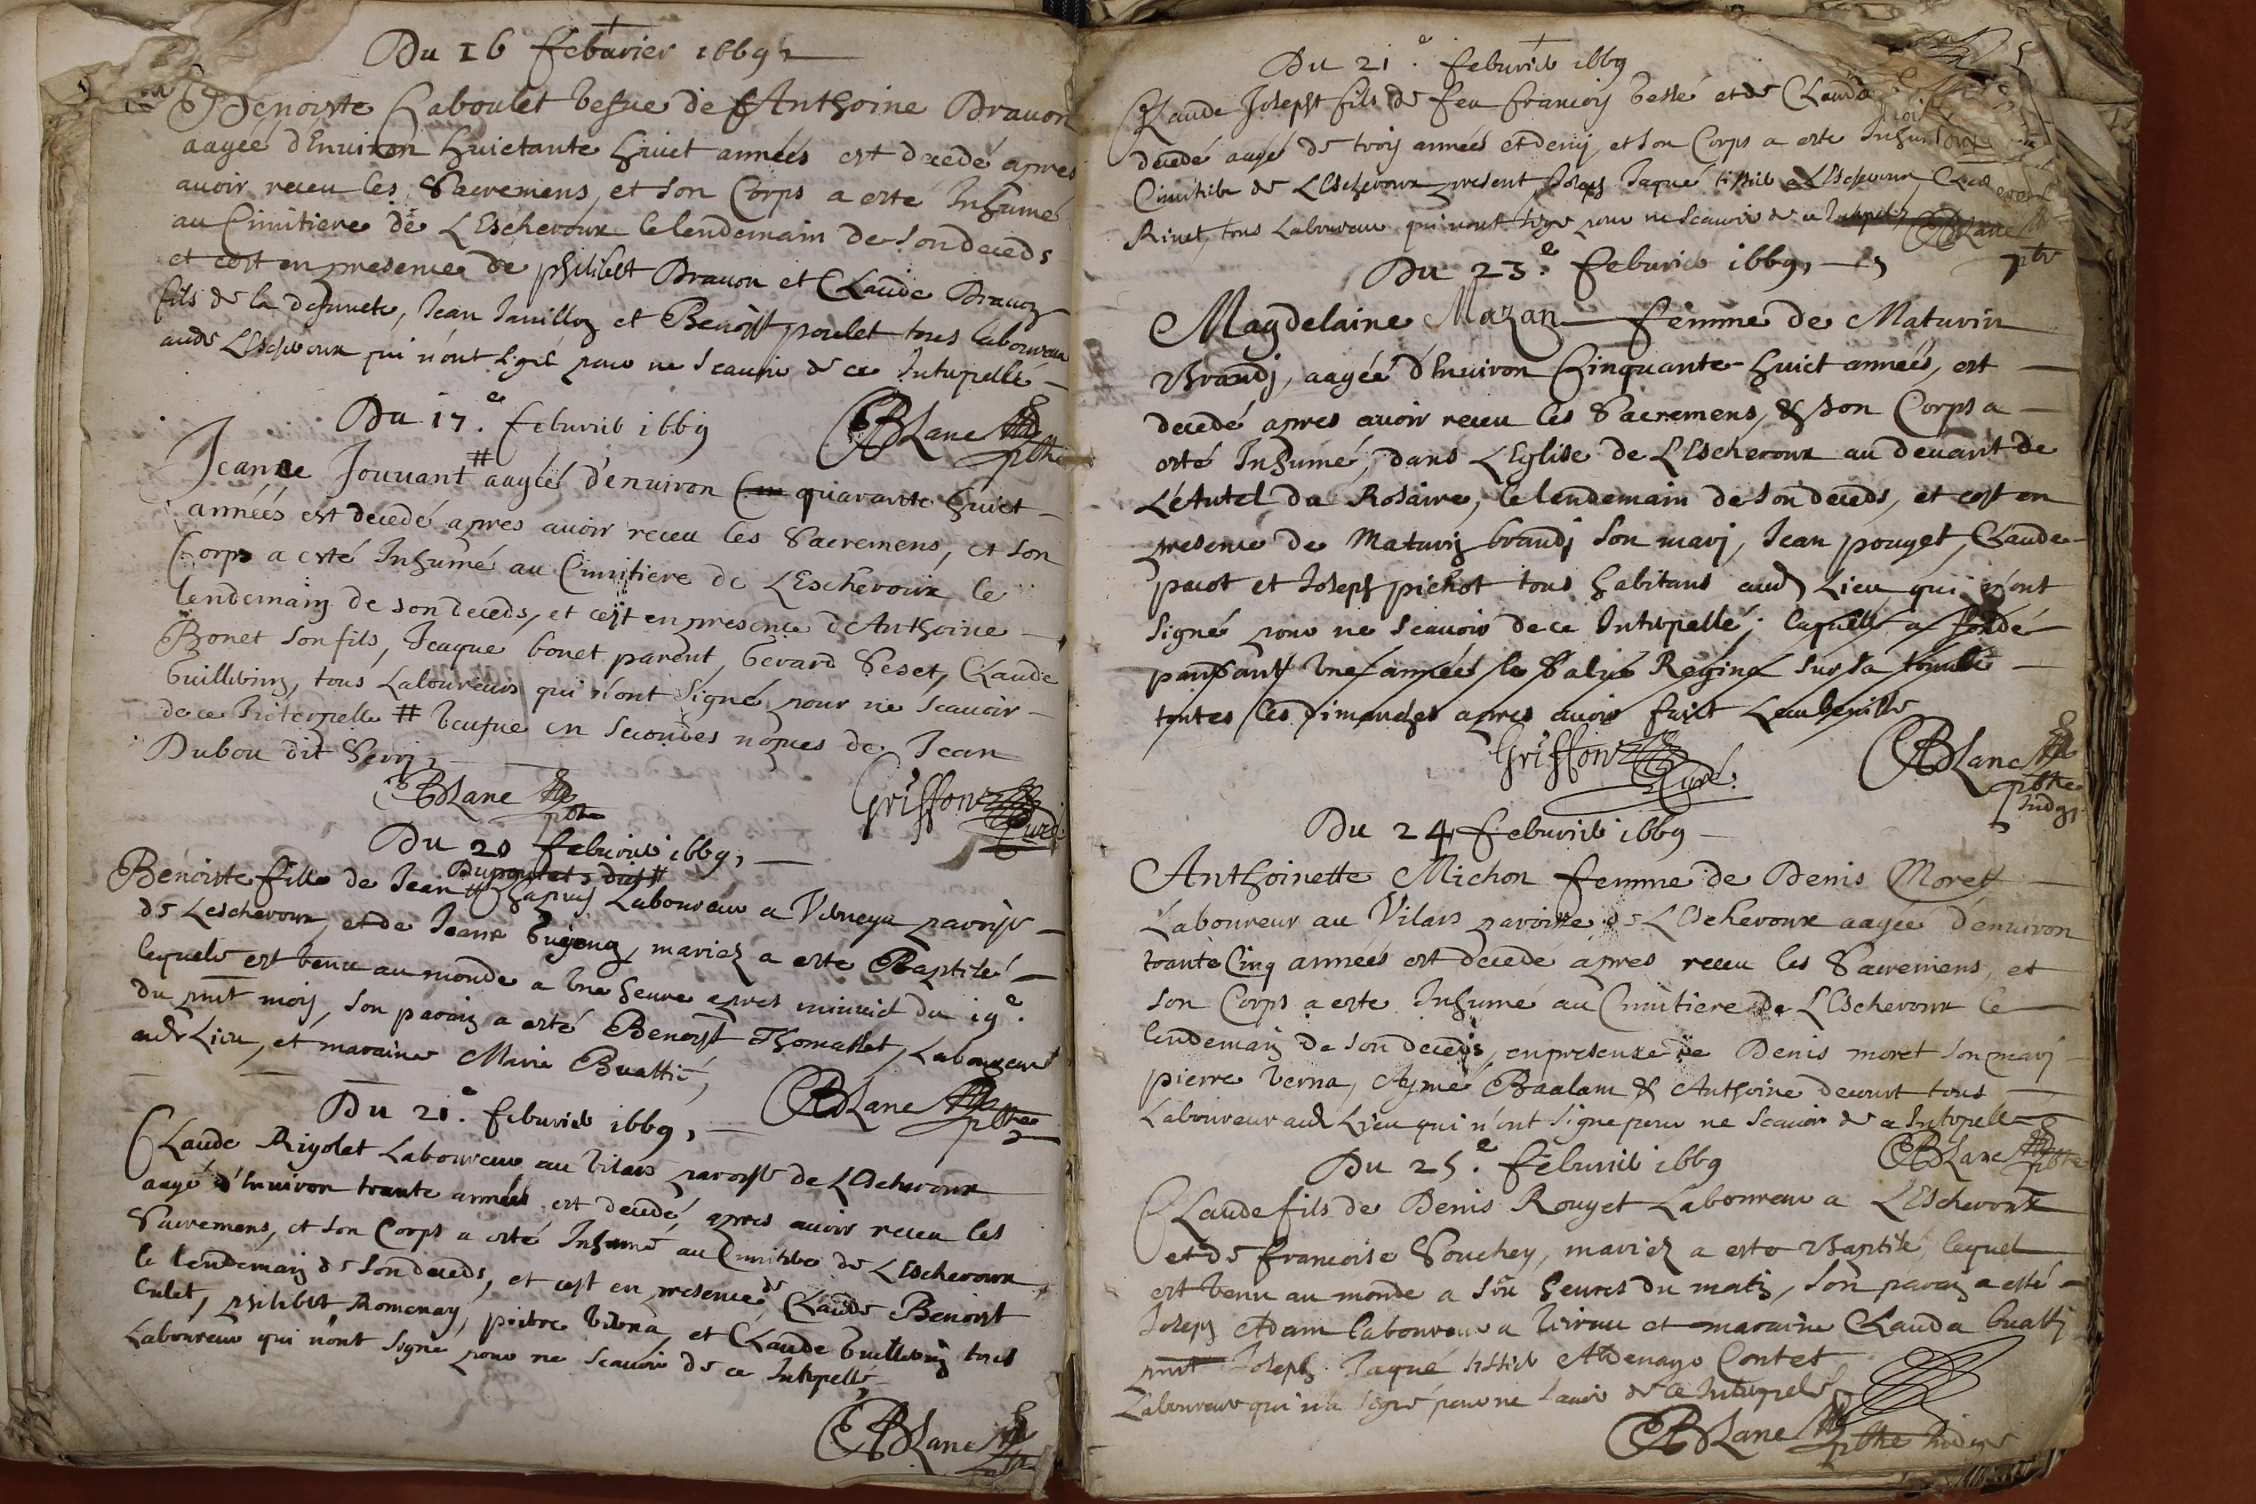 Du 16 Febvrier 1669,
Benoiste Caboulet vefue de Anthoine Drauon
aagéé d'Enuiron huictante huict annéés est decedé apres
auoir receu les Sacremens, et son Corps a esté Inhumé
au Cimitiere de L'Escheroux le lendemain de son deceds
et cest en presence de philibert Drauon et Claude Drauon
fils de la defuncte, Jean Jauillon et Benoist poulet tous laboureur
aud. L'Escheroux qui n'ont signé pour ne scauoir de ce Interpellé
BLanc pbre
Du 17.e feburier 1669
Jeanne Jouuant # aagéé d'enuiron quarante huict
annéés est decedé apres auoir receu les Sacremens, et son
Corps a esté Inhumé au Cimitiere de L'Escheroux le
lendemain de son deceds, et cest en presence d'Anthoine
Bonet son fils, Jcaque bonet parent, Gerard Peset, Claude
Guillermin, tous Laboureurs qui n'ont signé pour ne scauoir
de ce Interpelle # veufue en secondes nopces de Jean
Dubou dit
BLanc pbre
Griffon Curé
Du 20 feburier 1669,
Benoiste fille de Jean # Laboureur a Verneya paroisse
de Lescheroux, et de Jeanne mariez a este Baptisé
lequele est venu au monde a vne heure apres minuict du 19.e
du pnt mois, son parain a esté Benoist Thomasset, Laboureur
aud. Lieu, et maraine Marie Buattié,
BLanc pbre
Du 21.e feburier 1669,
Claude Rigolet Laboureur au vilars paroisse de L'Escheroux
aagé d'Enuiron trante annéés est decedé apres auoir receu les
Sacremens, et son Corps a esté Inhumé au Cimitiere de L'Escheroux
le lendemain de son deceds, et cest en presence de Claude Benoist
Culet, philibert Romenay, pierre verna, et Claude Guillermin tous
Laboureur qui n'ont signé pour ne scauoir de ce Interpellé
BLanc pbre
Du 21.e feburier 1669
Claude Joseph fils de feu francois et de Clauda
decedé aagé de trois annéés et demy, et son Corps a este Inhumé
Cimitiere de L'Escheroux present, Joseph Jaqué tissier a L'Escheroux,
Riuet, tous Laboureur qui n'ont signé pour ne scauoir de ce Interpelé BLanc
pbre
Du 23.e feburier 1669,
Magdelaine Mazan femme de Maturin
Brandj, aagéé d'Enuiron Cinquante huict annéés, est
decedé apres auoir receu les Sacremens, & son Corps a
esté Inhumé, dans L'Eglise de L'Escheroux au deuant de
L'Autel du Rosaire, le lendemain de son deceds, et cest en
presence de Maturin brandj son marj, Jean pouget, Claude
pacot et Joseph pichot tous habitans aud. Lieu qui n'ont
signé pour ne scauoir de ce Interpellé; laquelle a fondé
vne année le Salue Regina sur sa tombe
toutes les Dimanches apres auoir faict
Griffon Curé.
BLanc pbre Indig.
Du 24 feburier 1669
Anthoinette Michon femme de Denis Moret
Laboureur au Vilars paroisse de L'Escheroux aagéé d'enuiron
trante Cinq annéés est decedé apres receu les Sacremens, et
son Corps a este Inhumé au Cimitiere de L'Escheroux le
lendemain de son deceds, en presence de Denis moret son marj
pierre verna, Aymé Baalam & Anthoine decourt tous
Laboureur aud. Lieu qui n'ont signe pour ne scauoir de ce Interpellé
BLanc pbre
Du 25.e feburier 1669
Claude fils de Denis Rouget Laboureur a L'Escheroux
et de francoise Souchey, mariez a esté Baptisé, lequel
est venu au monde a heures du matin, son parain a esté
Joseph Adam laboureur a et maraine Clauda buattj
pnt Joseph Jaqué tissier Contet
Laboureur qui n'a signé pour ne scauoir de ce Interpelé
BLanc pbre Indigne